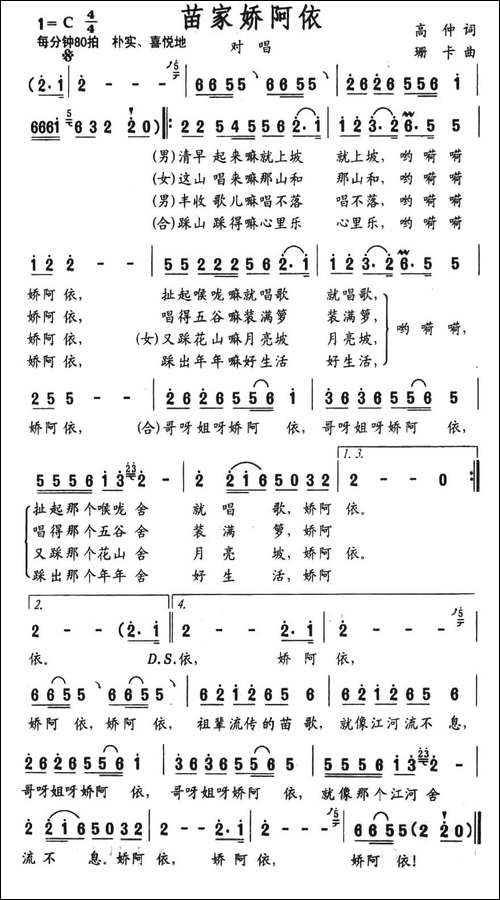 苗家娇阿依
1=C 4/4
高 仲 词
每分钟80拍 朴实、喜悦地
对 唱
珊 卡 曲
(2·1 2 - - - 6655 6655 2626 5 5 1
6661 6 3 2 2 20) 22 5 4556 2·1 123·2 6·5 5
(男)清早 起来嘛就上坡 就上坡, 哟嗬嗬
(女)这山 唱来嘛那山和 那山和, 哟嗬嗬
(男)丰收 歌儿嘛唱不落 唱不落, 哟嗬嗬
(合)踩山 踩得嘛心里乐 心里乐, 哟嗬嗬
1 2 2 - - 552225 6 2·1 123·2 6·5 5
娇阿依, 扯起喉咙嘛就唱歌 就唱歌,
娇阿依, 唱得五谷嘛装满箩 装满箩,
哟 嗬嗬,
娇阿依, (女)又踩花山嘛月亮坡 月亮坡,
娇阿依, 踩出年年嘛好生活 好生活,
2 5 5 - - 2 6 2 6 5 5 6 1 3 6 3 6 5 5 6 5
娇阿依, (合)哥呀姐呀娇阿 依, 哥呀姐呀娇阿 依,
1. 3.
5 5 5 5 6 1 3 2 - 2 2 1 6 5 0 3 2 2 - - 0
扯起那个喉咙舍 就 唱 歌,娇阿 依.
唱得那个五谷舍 装 满 箩,娇阿
又踩那个花山舍 月 亮 坡,娇阿 依.
踩出那个年年舍 好 生 活,娇阿
2. 4.
2 - - (2·1 2 - - 2·1 2 - - -
依. D.S.依, 娇 阿 依,
6 6 5 5 6 6 5 5 6 2 1 2 6 5 5 6 2 1 2 6 5 6
娇阿 依, 娇阿 依, 祖辈流传的苗歌, 就像江河流不 息,
2 6 2 6 5 5 6 1 3 6 3 6 5 5 6 5 5 5 5 5 6 1 3 2 -
哥呀姐呀娇阿 依, 哥呀姐呀娇阿 依, 就像那个江河舍
2 2 1 6 5 0 3 2 2 - 2·1 2 - - - 6 6 5 5 (2 2 0)
流 不 息.娇阿 依, 娇阿 依, 娇阿 依!